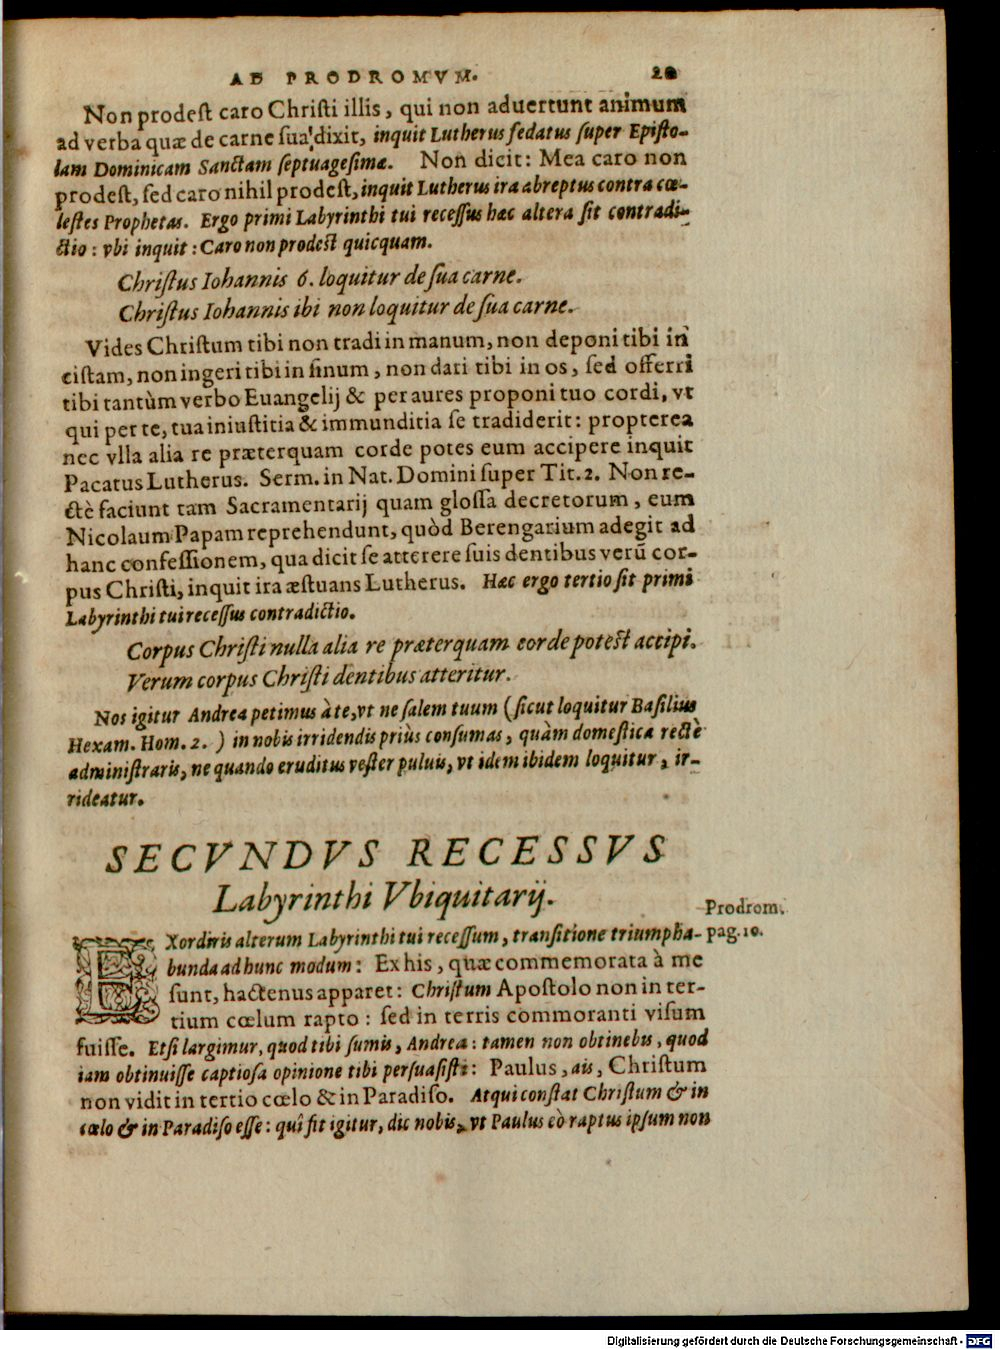 AD PRODROMVM.
Non prodeſt caro Chriſti illis, qui non aduertunt animum
ad verba quæ de carne ſua dixit, inquit Lutherus ſedatus ſuper Epiſto-
lam Dominicam Sanctam ſeptuageſimæ. Non dicit: Mea caro non
prodeſt, ſed caro nihil prodeſt, inquit Lutherus ira abreptus contra cœ-
leſtes Prophetas. Ergo primi Labyrinthi tui receſſus hæc altera ſit contradi-
ctio: vbi inquit: Caro non prodeſt quicquam.
Chriſtus Iohannis 6. loquitur de ſua carne.
Chriſtus Iohannis ibi non loquitur de ſua carne.
Vides Chriſtum tibi non tradi in manum, non deponi tibi in
ciſtam, non ingeri tibi in ſinum, non dari tibi in os, ſed offerri
tibi tantùm verbo Euangelij & per aures proponi tuo cordi, vt
qui per te, tua iniuſtitia & immunditia ſe tradiderit: propterea
nec vlla alia re præterquam corde potes eum accipere inquit
Pacatus Lutherus. Serm. in Nat. Domini ſuper Tit. 2. Non re-
ctè faciunt tam Sacramentarij quam gloſſa decretorum, eum
Nicolaum Papam reprehendunt, quòd Berengarium adegit ad
hanc confeſſionem, qua dicit ſe atterere ſuis dentibus verũ cor-
pus Chriſti, inquit ira æſtuans Lutherus. Hæc ergo tertio ſit primi
Labyrinthi tui receſſus contradictio.
Corpus Chriſti nulla alia re præterquam corde poteſt accipi.
Verum corpus Chriſti dentibus atteritur.
Nos igitur Andrea petimus à te, vt ne ſalem tuum (ſicut loquitur Baſilius
Hexam. Hom. 2. ) in nobis irridendis priùs conſumas, quàm domeſtica rectè
adminiſtraris, ne quando eruditus veſter puluis, vt idem ibidem loquitur, ir-
rideatur.
SECVNDVS RECESSVS
Labyrinthi Vbiquitarij.
Prodrom.
pag. 10.
EXordiris alterum Labyrinthi tui receſſum, tranſitione triumpha-
bunda ad hunc modum: Ex his, quæ commemorata à me
ſunt, hactenus apparet: Chriſtum Apoſtolo non in ter-
tium cœlum rapto: ſed in terris commoranti viſum
fuiſſe. Etſi largimur, quod tibi ſumis, Andrea: tamen non obtinebis, quod
iam obtinuiſſe captioſa opinione tibi perſuaſiſti: Paulus, ais, Chriſtum
non vidit in tertio cœlo & in Paradiſo. Atqui conſtat Chriſtum & in
cœlo & in Paradiſo eſſe: quî fit igitur, dic nobis, vt Paulus eò raptus ipſum non
Digitalisierung gefördert durch die Deutsche Forschungsgemeinschaft - DFG